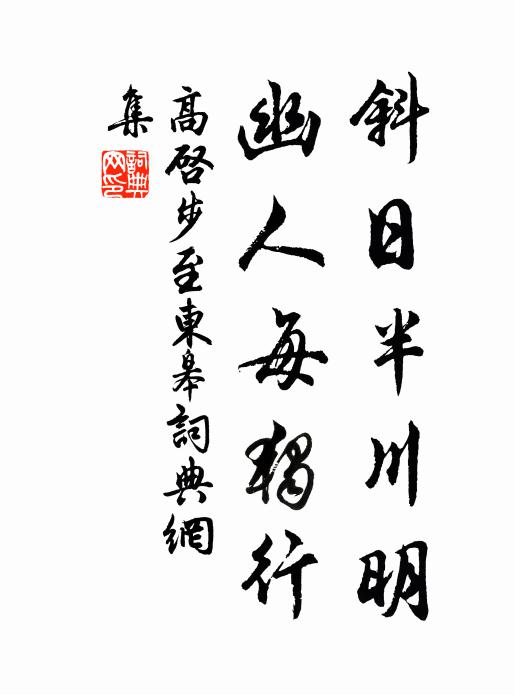 斜日半川明
幽人每獨行
高啓步至東皋詞典網
集
詞典
网印